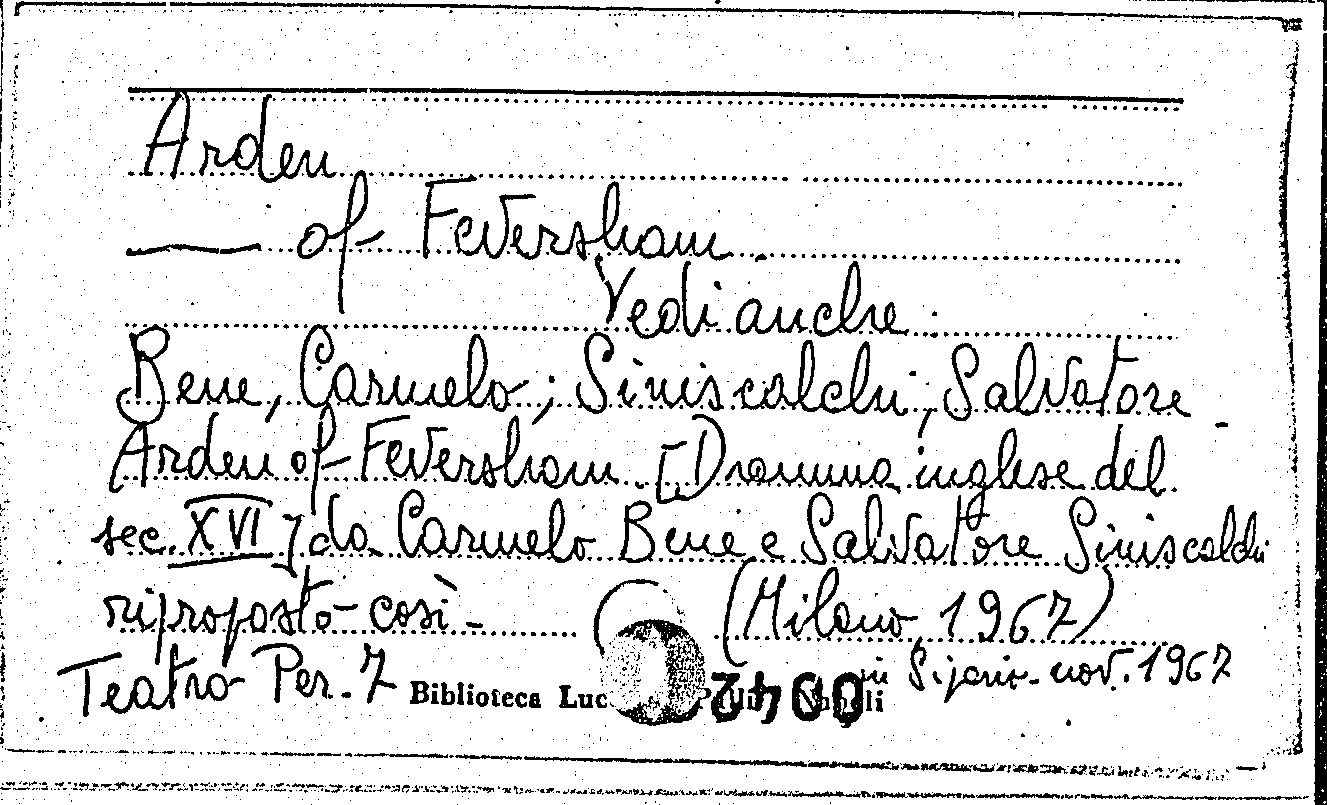 Arden
—— of Feversham.
Vedi anche:
Bene, Carmelo; Siniscalchi, Salvatore -
Arden of Feversham. [Dramma inglese del
sec. XVI] da Carmelo Bene e Salvatore Siniscalchi
riproposto così -
(Milano, 1967)
in Sipario. nov. 1967
Teatro Per. 7
Biblioteca Luc